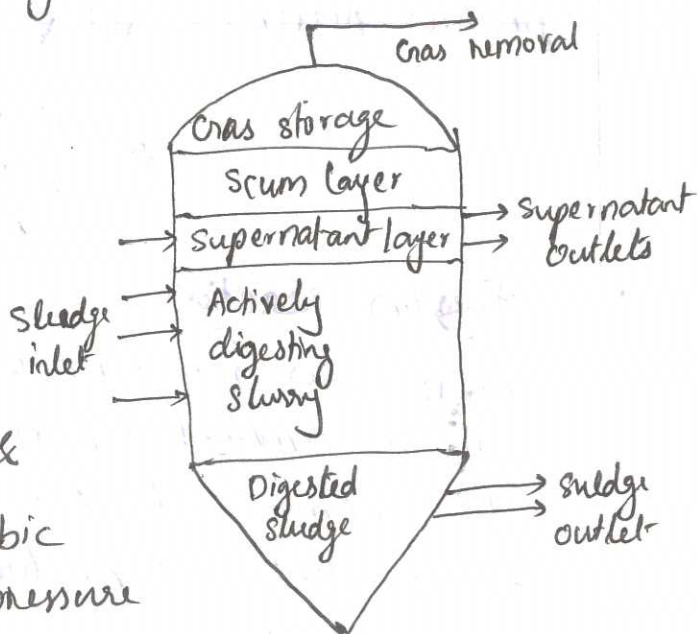 Gas removal
Gas storage
Scum layer
Supernatant layer
Supernatant
Outlets
Sludge
inlet
Actively
digesting
slurry
Digested
sludge
suldge
outlet
&
bic
pressure